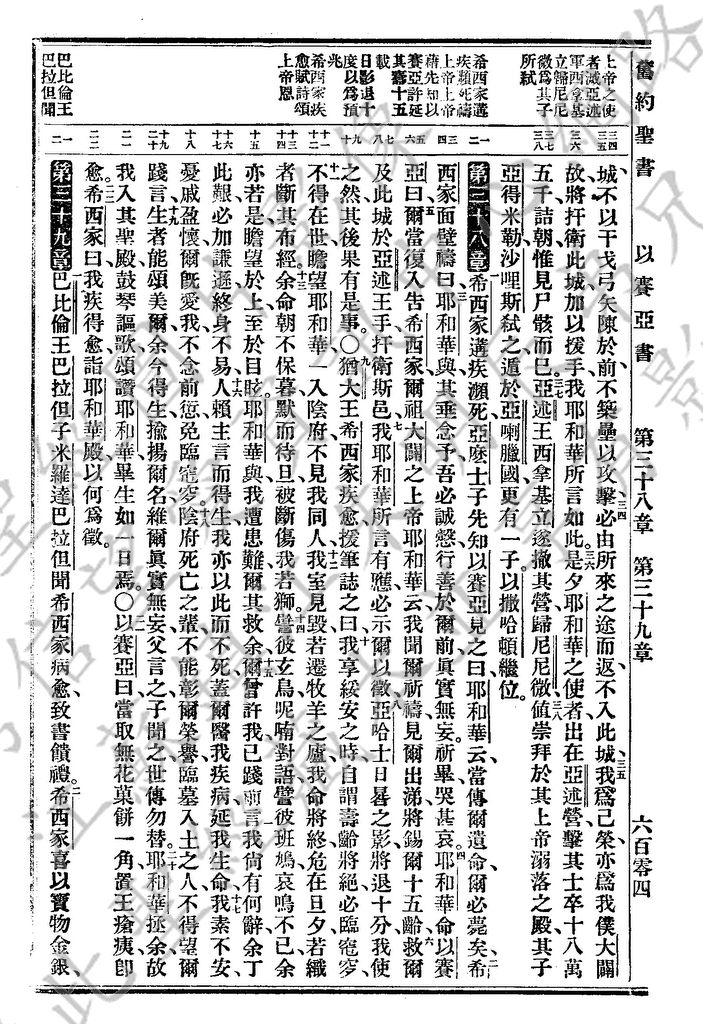 舊約聖書　以賽亞書　第三十八章　第三十九章　六百零四
上帝之使
者滅亞述
軍西拿基
立歸尼尼
微爲其子
所弑
希西家遘
疾瀕死禱
上帝上帝
藉先知以
賽亞許延
其壽十五
載
日影退十
度以爲預
兆
希西家疾
愈賦詩頌
上帝恩
巴比倫王
巴拉但聞
城不以干戈弓矢陳於前不築壘以攻擊必由所來之途而返不入此城我爲己榮亦爲我僕大闢
故將扞衛此城加以援手我耶和華所言如此是夕耶和華之使者出在亞述營擊其士卒十八萬
五千詰朝惟見尸骸而已亞述王西拿基立遂撤其營歸尼尼微値崇拜於其上帝溺落之殿其子
亞得米勒沙哩斯弑之遁於亞喇臘國更有一子以撒哈頓繼位。
第三十八章 希西家遘疾瀕死亞麽士子先知以賽亞見之曰耶和華云當傳爾遺命爾必薨矣希
西家面壁禱曰耶和華與其垂念予吾必誠慤行善於爾前眞實無妄祈畢哭甚哀耶和華命以賽
亞曰爾當復入告希西家爾祖大闢之上帝耶和華云我聞爾祈禱見爾出涕將錫爾十五齡救爾
及此城於亞述王手扞衛斯邑我耶和華所言有應必示爾以徵亞哈士日晷之影將退十分我使
之然其後果有是事〇猶大王希西家疾愈援筆誌之曰我享綏安之時自謂壽齡將絕必臨窀穸
不得在世瞻望耶和華一入陰府不見我同人我室見毀若遷牧羊之廬我命將終危在旦夕若織
者斷其布經余命朝不保暮默而待旦被斷傷我若獅譬彼玄鳥呢喃對語譬彼班鳩哀鳴不已余
亦若是瞻望於上至於目眩耶和華與我遭患難爾其救余爾曾許我已踐前言我尙有何辭余丁
此艱必加謙遜終身不易人賴主言而得生我亦以此而不死蓋爾醫我疾病延我生命我素不安
憂戚盈懷爾旣愛我不念前愆免臨窀穸陰府死亡之輩不能彰爾榮譽臨墓入土之人不得望爾
踐言生者能頌美爾余今得生揄揚爾名維爾眞實無妄父言之子聞之世傳勿替耶和華拯余故
我入其聖殿鼓琴謳歌頌讚耶和華畢生如一日焉〇以賽亞曰當取無花菓餅一角置王瘡痍卽
愈希西家曰我疾得愈詣耶和華殿以何爲徵。
第三十九章 巴比倫王巴拉但子米羅達巴拉但聞希西家病愈致書饋禮希西家喜以寶物金銀